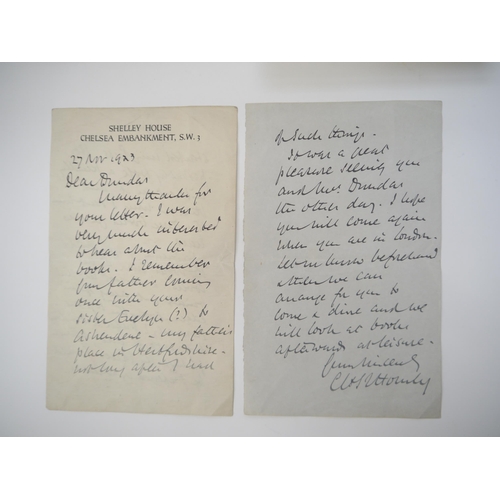 SHELLEY HOUSE
CHELSEA EMBANKMENT, S.W.3
27 Nov 1923
Dear Dundas
Many thanks for
your letter. I was
very much interested
to hear about the
books. I remember
your father coming
once with your
sister Evelyn (?) to
Ashendene - my father's
place in Hertfordshire -
not long after I had
of such things.
It was a great
pleasure seeing you
and Mrs. Dundas
the other day. I hope
you will come again
when you are in London.
Let me know beforehand
& then we can
arrange for you to
come & dine and we
will look at books
afterwards at leisure.
Yours sincerely
C H St J Hornby